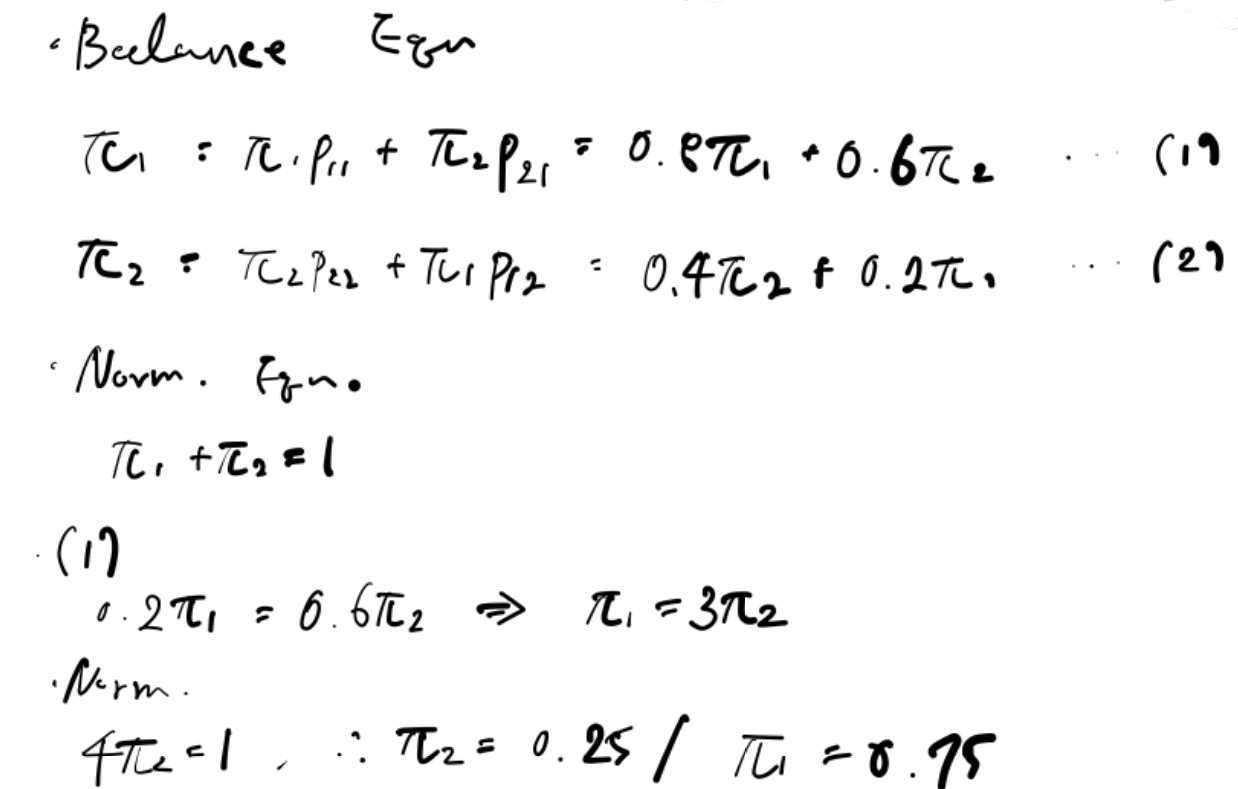 · Balance Eqn
π₁ = π₁p₁₁ + π₂p₂₁ = 0.8π₁ + 0.6π₂ ... (1)
π₂ = π₂p₂₂ + π₁p₁₂ = 0.4π₂ + 0.2π₁ ... (2)
· Norm. Eqn.
π₁ + π₂ = 1
· (1)
0.2π₁ = 0.6π₂ ⇒ π₁ = 3π₂
· Norm.
4π₂ = 1, ∴ π₂ = 0.25 / π₁ = 0.75